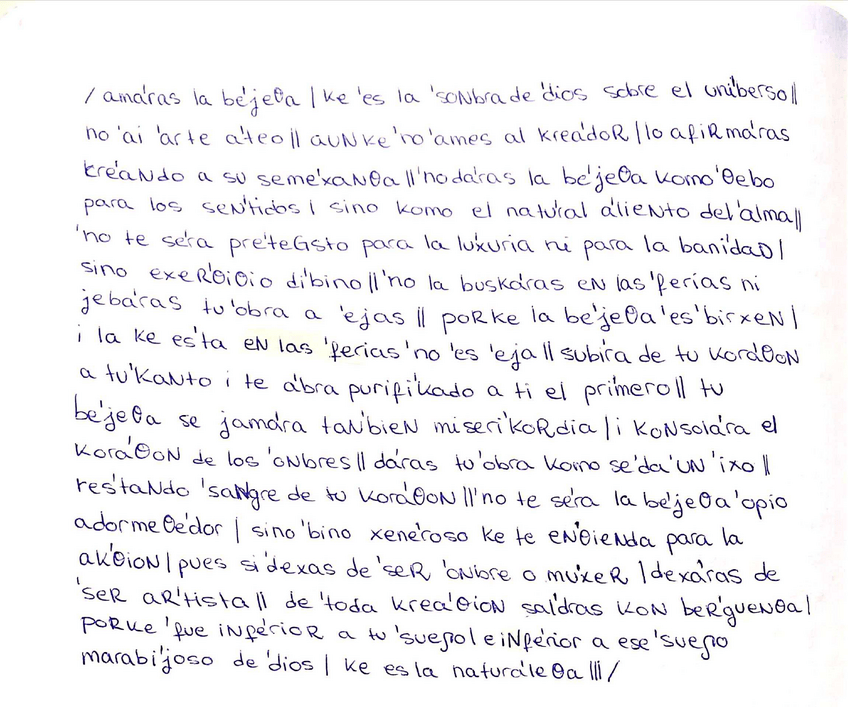 / ama'ras la be'jeθa | ke 'es la 'soNbra de 'dios sobre el uni'berso ||
no 'ai 'arte a'teo || auNke 'no 'ames al krea'doR | lo afiRma'ras
kre'aNdo a su seme'xaNθa || 'no da'ras la be'jeθa komo 'θebo
para los seN'tidos | sino komo el natu'ral a'lieNto del 'alma ||
'no te se'ra pre'teGsto para la lu'xuria ni para la bani'daD |
sino exeR'θiθio di'bino || 'no la buska'ras eN las 'ferias ni
jeba'ras tu 'obra a 'ejas || poRke la be'jeθa 'es 'birxeN |
i la ke es'ta eN las 'ferias 'no 'es 'eja || subi'ra de tu kora'θoN
a tu 'kaNto i te a'bra purifi'kado a ti el pri'mero || tu
be'jeθa se jama'ra taN'bieN miseri'koRdia | i koNsola'ra el
kora'θoN de los 'oNbres || da'ras tu 'obra komo se 'da 'uN 'ixo ||
res'taNdo 'saNgre de tu kora'θoN || 'no te se'ra la be'jeθa 'opio
adormeθe'dor | sino 'bino xene'roso ke te eN'θieNda para la
ak'θioN | pues si 'dexas de 'seR 'oNbre o mu'xeR | dexa'ras de
'seR aR'tista || de 'toda krea'θioN sal'dras koN beR'gueNθa |
poRke 'fue iNfe'rioR a tu 'sueɲo | e iNfe'rior a ese 'sueɲo
marabi'joso de 'dios | ke es la natura'leθa ||| /